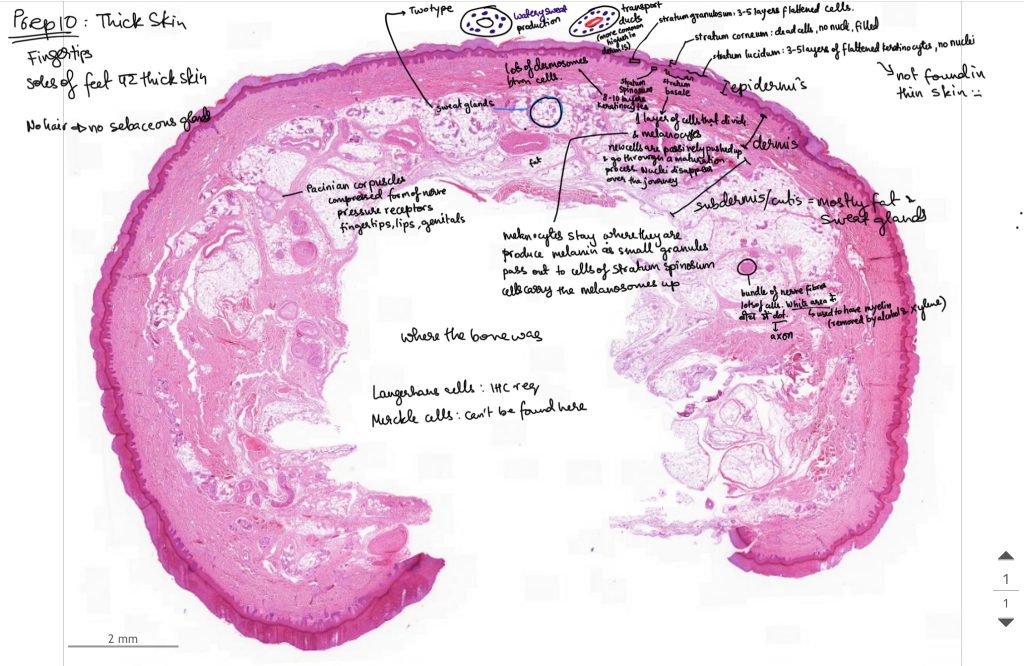 Prep 10 : Thick Skin
Fingertips
soles of feet
thick skin
No hair → no sebaceous gland
Two type
watery sweat
production
transport
ducts
(more common
higher in
dermis)
stratum granulosum: 3-5 layers flattened cells.
stratum corneum: dead cells, no nuclei, filled
stratum lucidum: 3-5 layers of flattened keratinocytes, no nuclei
↳ not found in
thin skin
lots of desmosomes
btwn cells.
stratum
spinosum
8-10 layers
keratinocytes
stratum
basale
[epidermis
sweat glands
1 layer of cells that divide
& melanocytes
new cells are passively pushed up
& go through a maturation
process. Nuclei disappear
over the journey
dermis
fat
Pacinian corpuscles
compressed form of nerve
pressure receptors
fingertips, lips, genitals
subdermis/cutis = mostly fat &
sweat glands
melanocytes stay where they are
produce melanin as small granules
pass out to cells of Stratum Spinosum
cells carry the melanosomes up
bundle of nerve fibres
lots of cells. White area
dot.
↳ used to have myelin
(removed by alcohol & xylene)
axon
where the bone was
Langerhans cells : IHC req
Merckle cells : can't be found here
2 mm
1
1